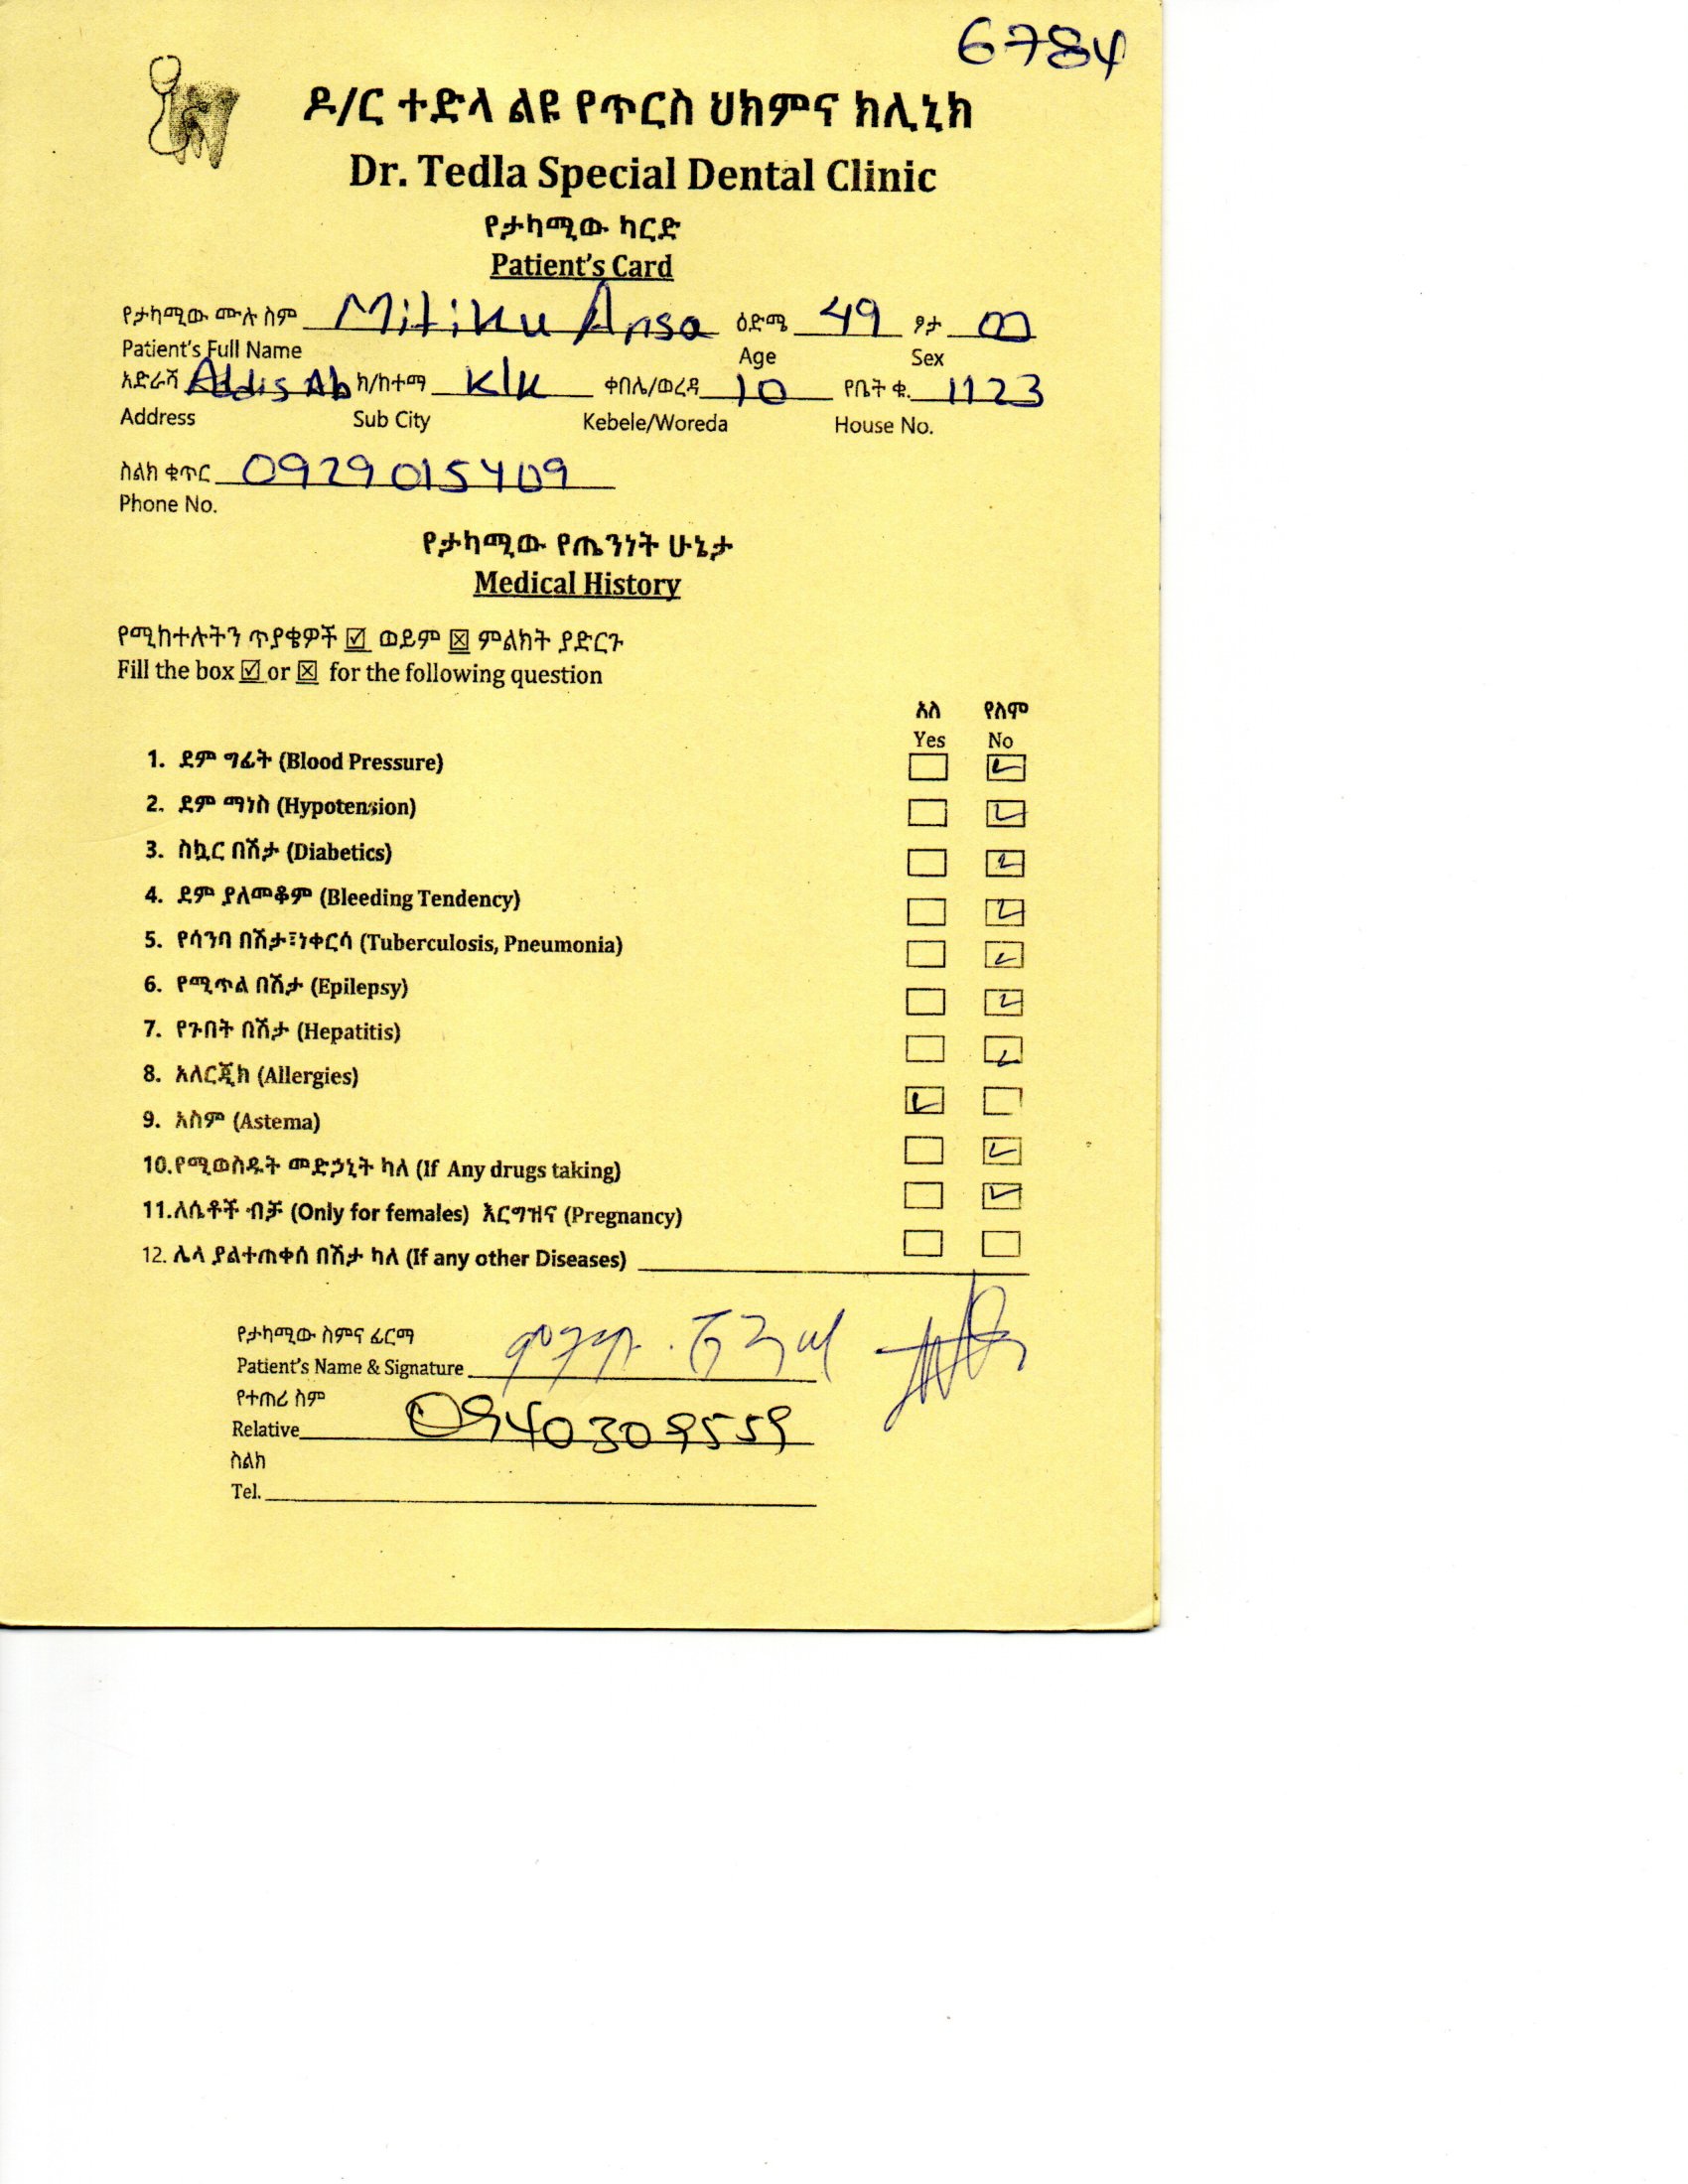 6784
ዶ/ር ተድላ ልዩ የጥርስ ህክምና ክሊኒክ
Dr. Tedla Special Dental Clinic
የታካሚው ካርድ
Patient's Card
የታካሚው ሙሉ ስም Mitiku Ansa ዕድሜ 49 ፆታ m
Patient's Full Name Age Sex
አድራሻ Addis Ab ክ/ከተማ K/K ቀበሌ/ወረዳ 10 የቤት ቁ. 1123
Address Sub City Kebele/Woreda House No.
ስልክ ቁጥር 0929015409
Phone No.
የታካሚው የጤንነት ሁኔታ
Medical History
የሚከተሉትን ጥያቄዎች ☑ ወይም ☒ ምልክት ያድርጉ
Fill the box ☑ or ☒ for the following question
አለ የለም
Yes No
1. ደም ግፊት (Blood Pressure) ☐ ☑
2. ደም ማነስ (Hypotension) ☐ ☑
3. ስኳር በሽታ (Diabetics) ☐ ☑
4. ደም ያለመቆም (Bleeding Tendency) ☐ ☑
5. የሳንባ በሽታ፣ነቀርሳ (Tuberculosis, Pneumonia) ☐ ☑
6. የሚጥል በሽታ (Epilepsy) ☐ ☑
7. የጉበት በሽታ (Hepatitis) ☐ ☑
8. አለርጂክ (Allergies) ☑ ☐
9. አስም (Astema) ☐ ☑
10.የሚወስዱት መድኃኒት ካለ (If Any drugs taking) ☐ ☑
11.ለሴቶች ብቻ (Only for females) እርግዝና (Pregnancy) ☐ ☐
12. ሌላ ያልተጠቀሰ በሽታ ካለ (If any other Diseases)
የታካሚው ስምና ፊርማ
Patient's Name & Signature
የተጠሪ ስም
Relative 0940309559
ስልክ
Tel.